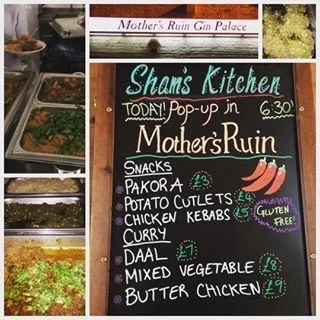 Mother's Ruin Gin Palace
Sham's Kitchen
TODAY! Pop-up in 6:30!
Mother's Ruin
SNACKS
PAKORA £3
POTATO CUTLETS £4
CHICKEN KEBABS £5
GLUTEN FREE!
CURRY
DAAL £7
MIXED VEGETABLE £8
BUTTER CHICKEN £9